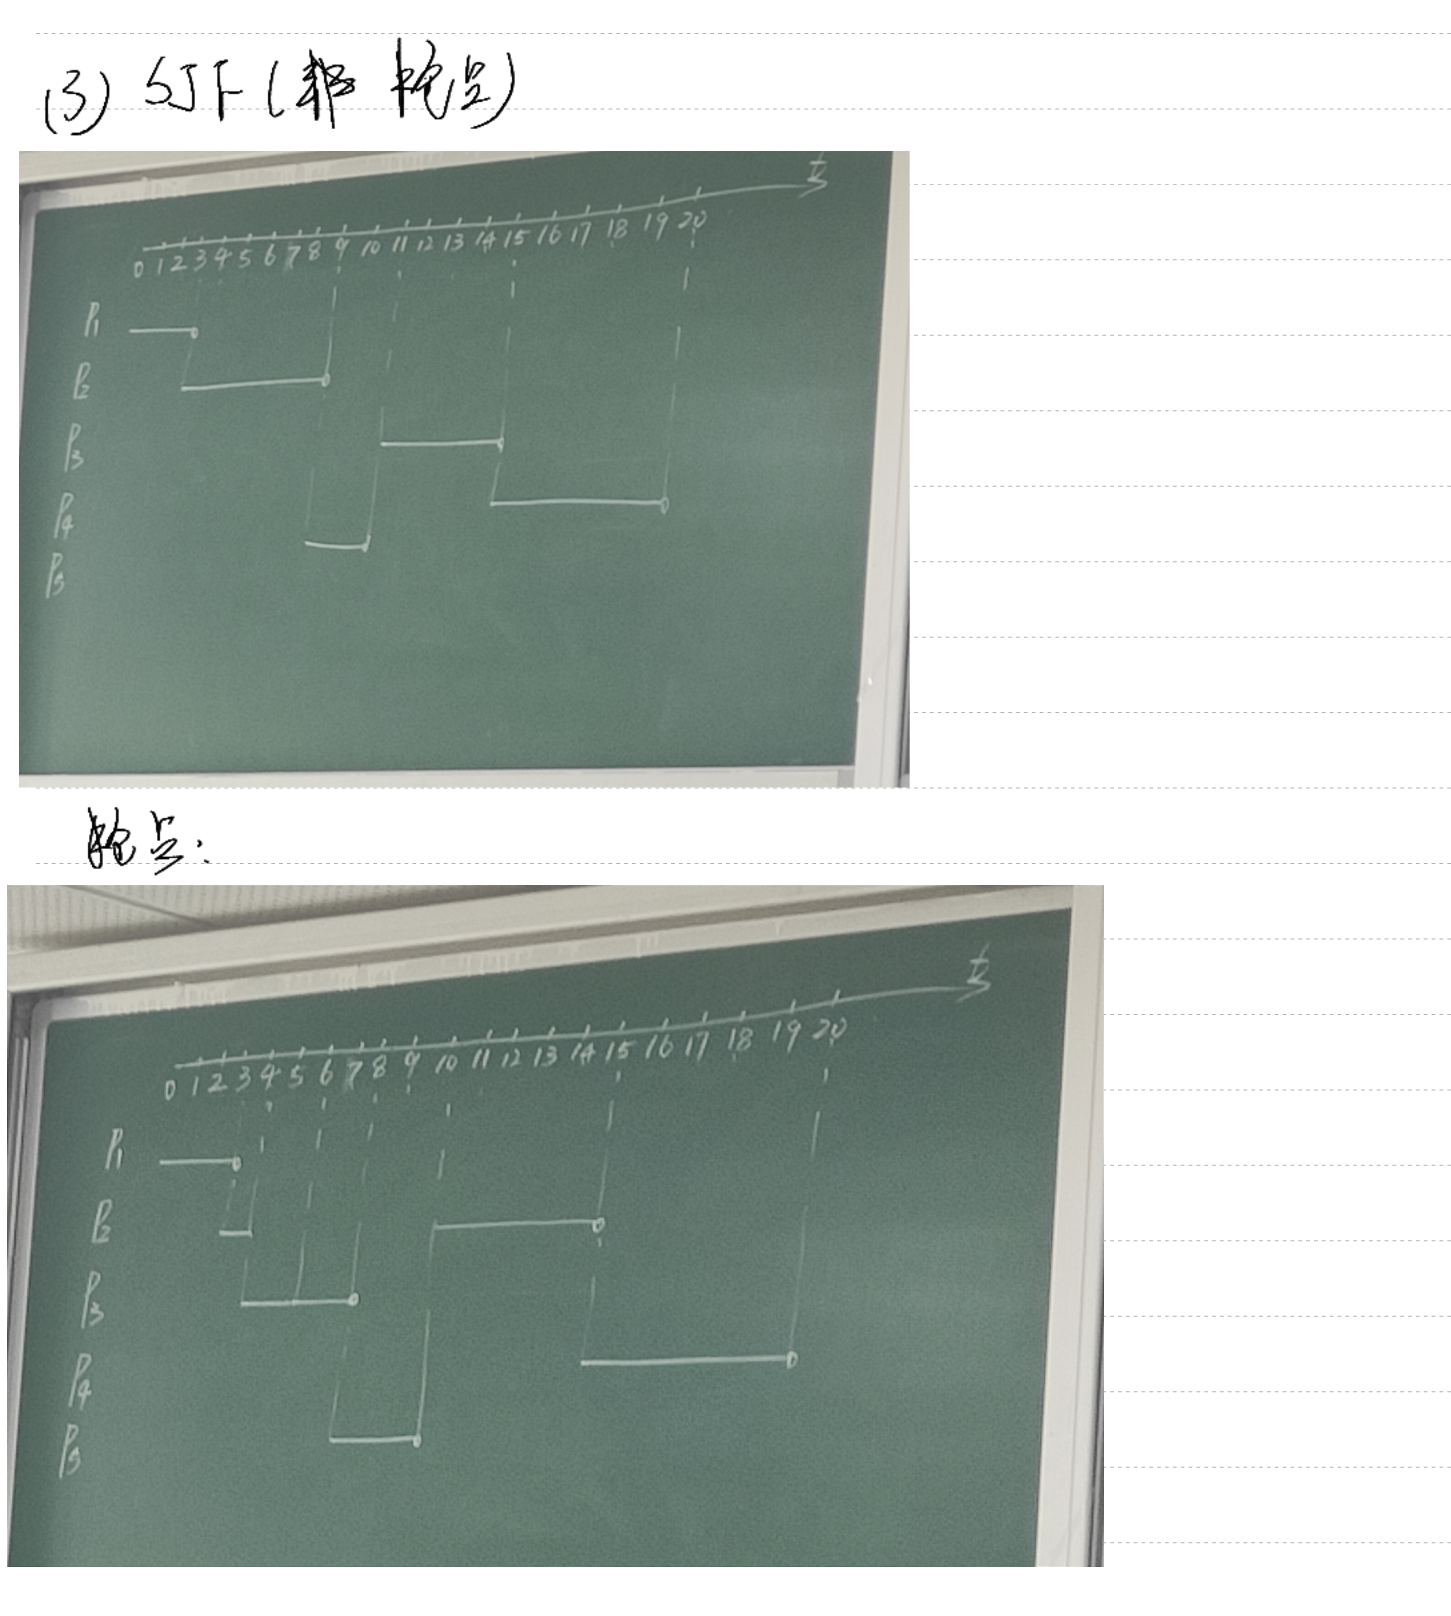 (3) SJF (非抢占)
t
0 1 2 3 4 5 6 7 8 9 10 11 12 13 14 15 16 17 18 19 20
P1
P2
P3
P4
P5
抢占:
t
0 1 2 3 4 5 6 7 8 9 10 11 12 13 14 15 16 17 18 19 20
P1
P2
P3
P4
P5